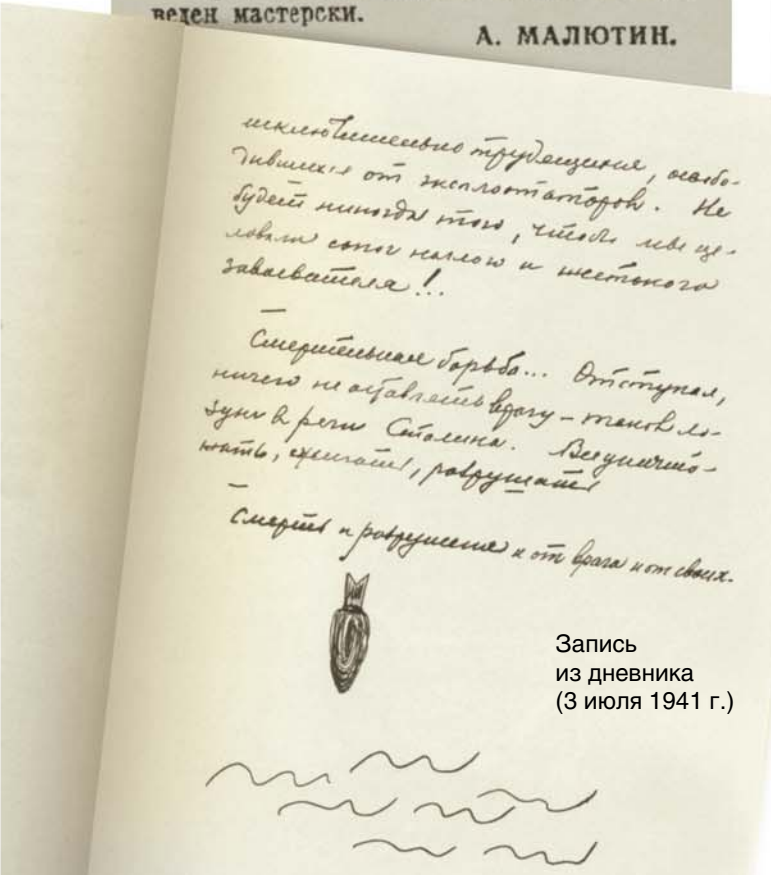 веден мастерски.
А. МАЛЮТИН.
исключительно трудящихся, освобо-
дившихся от эксплоататоров. Не
будет никогда того, чтобы мы це-
ловали сапог наглого и жестокого
завоевателя!..
Смертельная борьба... Отступая,
ничего не оставлять врагу – таков ло-
зунг в речи Сталина. Все уничто-
жать, сжигать, разрушать
Смерть и разрушения и от врага и от своих.
Запись
из дневника
(3 июля 1941 г.)